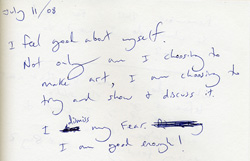 July 11/08
I feel good about myself.
Not only am I choosing to
make art, I am choosing to
try and show & discuss it.
I dismiss my fear.
I am good enough!